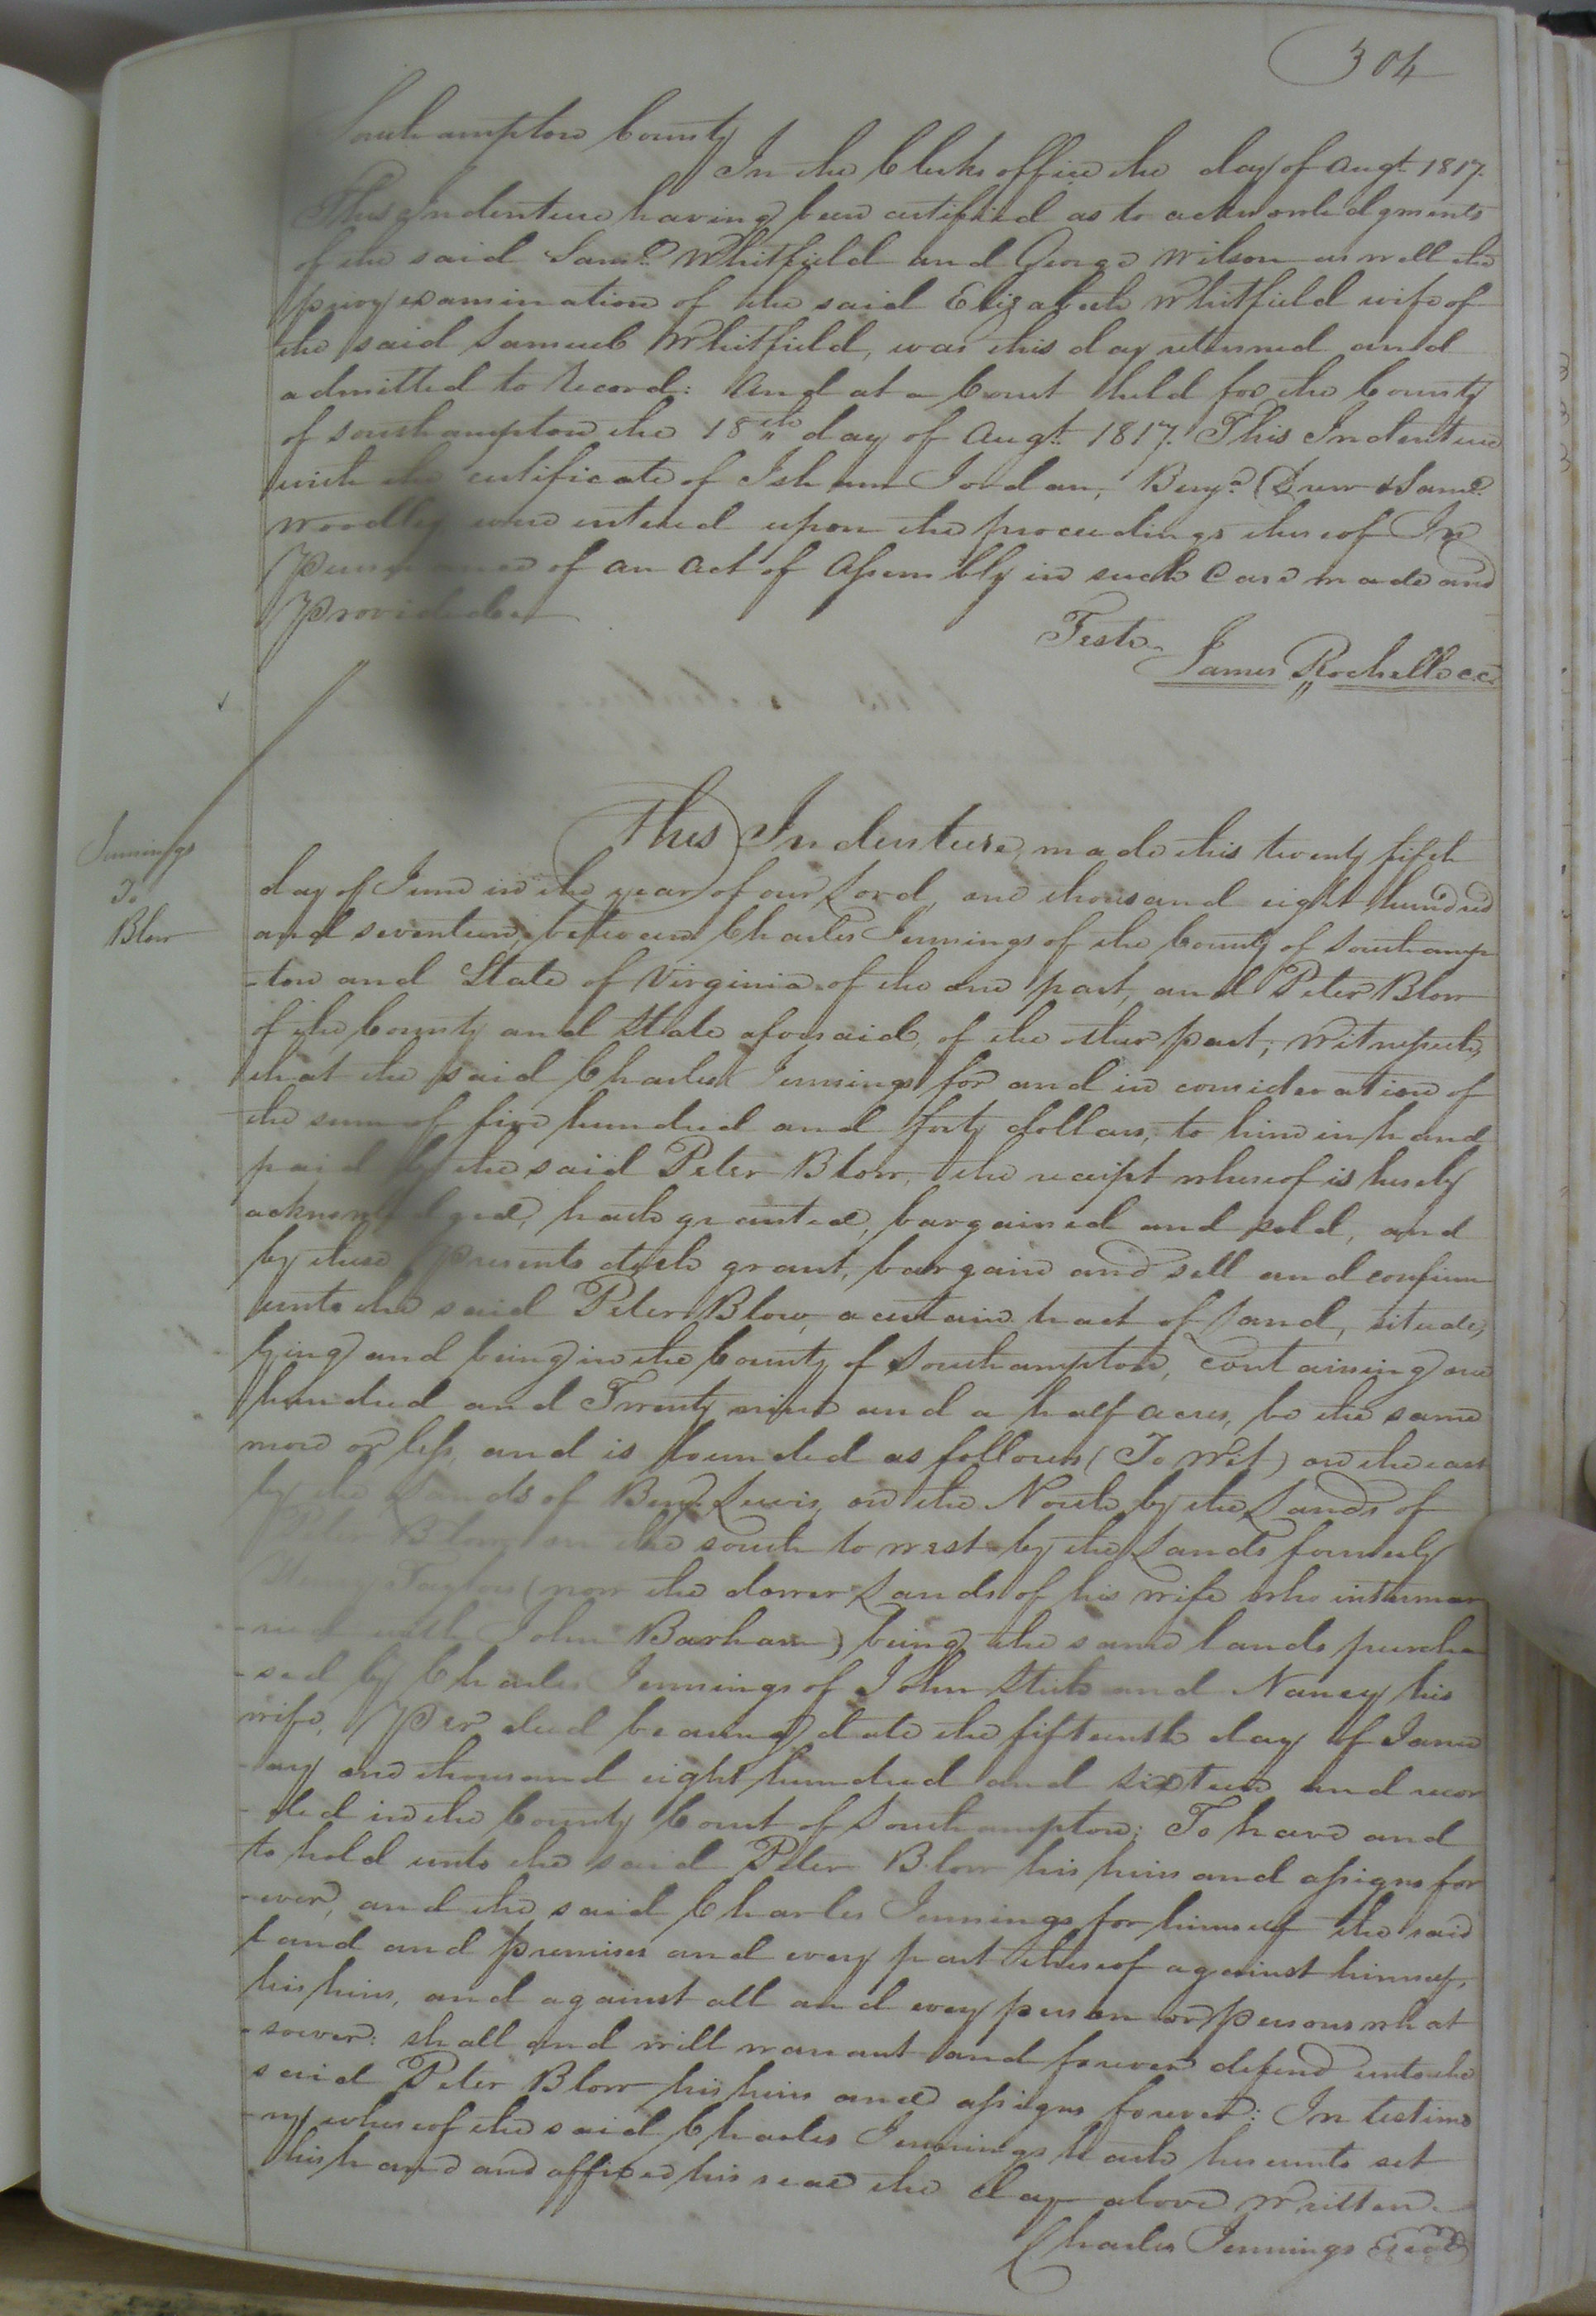 304
Southampton County
In the Clerks office the day of Augt. 1817.
This Indenture having been certified as to acknowledgments
of the said Saml. Whitfield and George Wilson as well the
privy examination of the said Elizabeth Whitfield wife of
the said Samuel Whitfield, was this day returned and
admitted to Record: And at a Court held for the County
of Southampton the 18th day of Augt. 1817. This Indenture
with the certificate of Isham Jordan, Benja. Drew & Saml.
Woodley were entered upon the proceedings thereof In
Pursuance of an Act of Assembly in such Case made and
Provided
Teste
James Rochelle C.C.
Jennings
To
Blow
This Indenture, made this twenty fifth
day of June in the year of our Lord, one thousand eight hundred
and seventeen, between Charles Jennings of the County of Southamp
-ton and State of Virginia of the one part, and Peter Blow
of the County and State aforesaid, of the other part; Witnesseth,
that the said Charles Jennings for and in consideration of
the sum of five hundred and forty dollars, to him in hand
paid by the said Peter Blow, the receipt whereof is hereby
acknowledged, hath granted, bargained and sold, and
by these Presents doth grant, bargain and sell and confirm
unto the said Peter Blow, a certain tract of Land, situate,
lying and being in the County of Southampton, containing one
hundred and Twenty nine and a half acres, be the same
more or less, and is bounded as follows (To Wit) on the east
by the Lands of Benj. Lewis, on the North by the Lands of
Peter Blow on the south to west by the Lands formerly
Henry Taylors (now the dower Lands of his wife who intermar
-ried with John Barham) being the same lands purcha
-sed by Charles Jennings of John Stith and Nancy his
wife, Per deed bearing date the fifteenth day of Janu
-ary one thousand eight hundred and sixteen and recor
-ded in the County Court of Southampton; To have and
to hold unto the said Peter Blow his heirs and assigns for
-ever, and the said Charles Jennings for himself the said
land and premises and every part thereof against himself,
his heirs, and against all and every person or persons what
-soever: shall and will warrant and forever defend unto the
said Peter Blow his heirs and assigns forever: In testimo
-ny whereof the said Charles Jennings hath hereunto set
his hand and affixed his seal the day above written.
Charles Jennings Seal